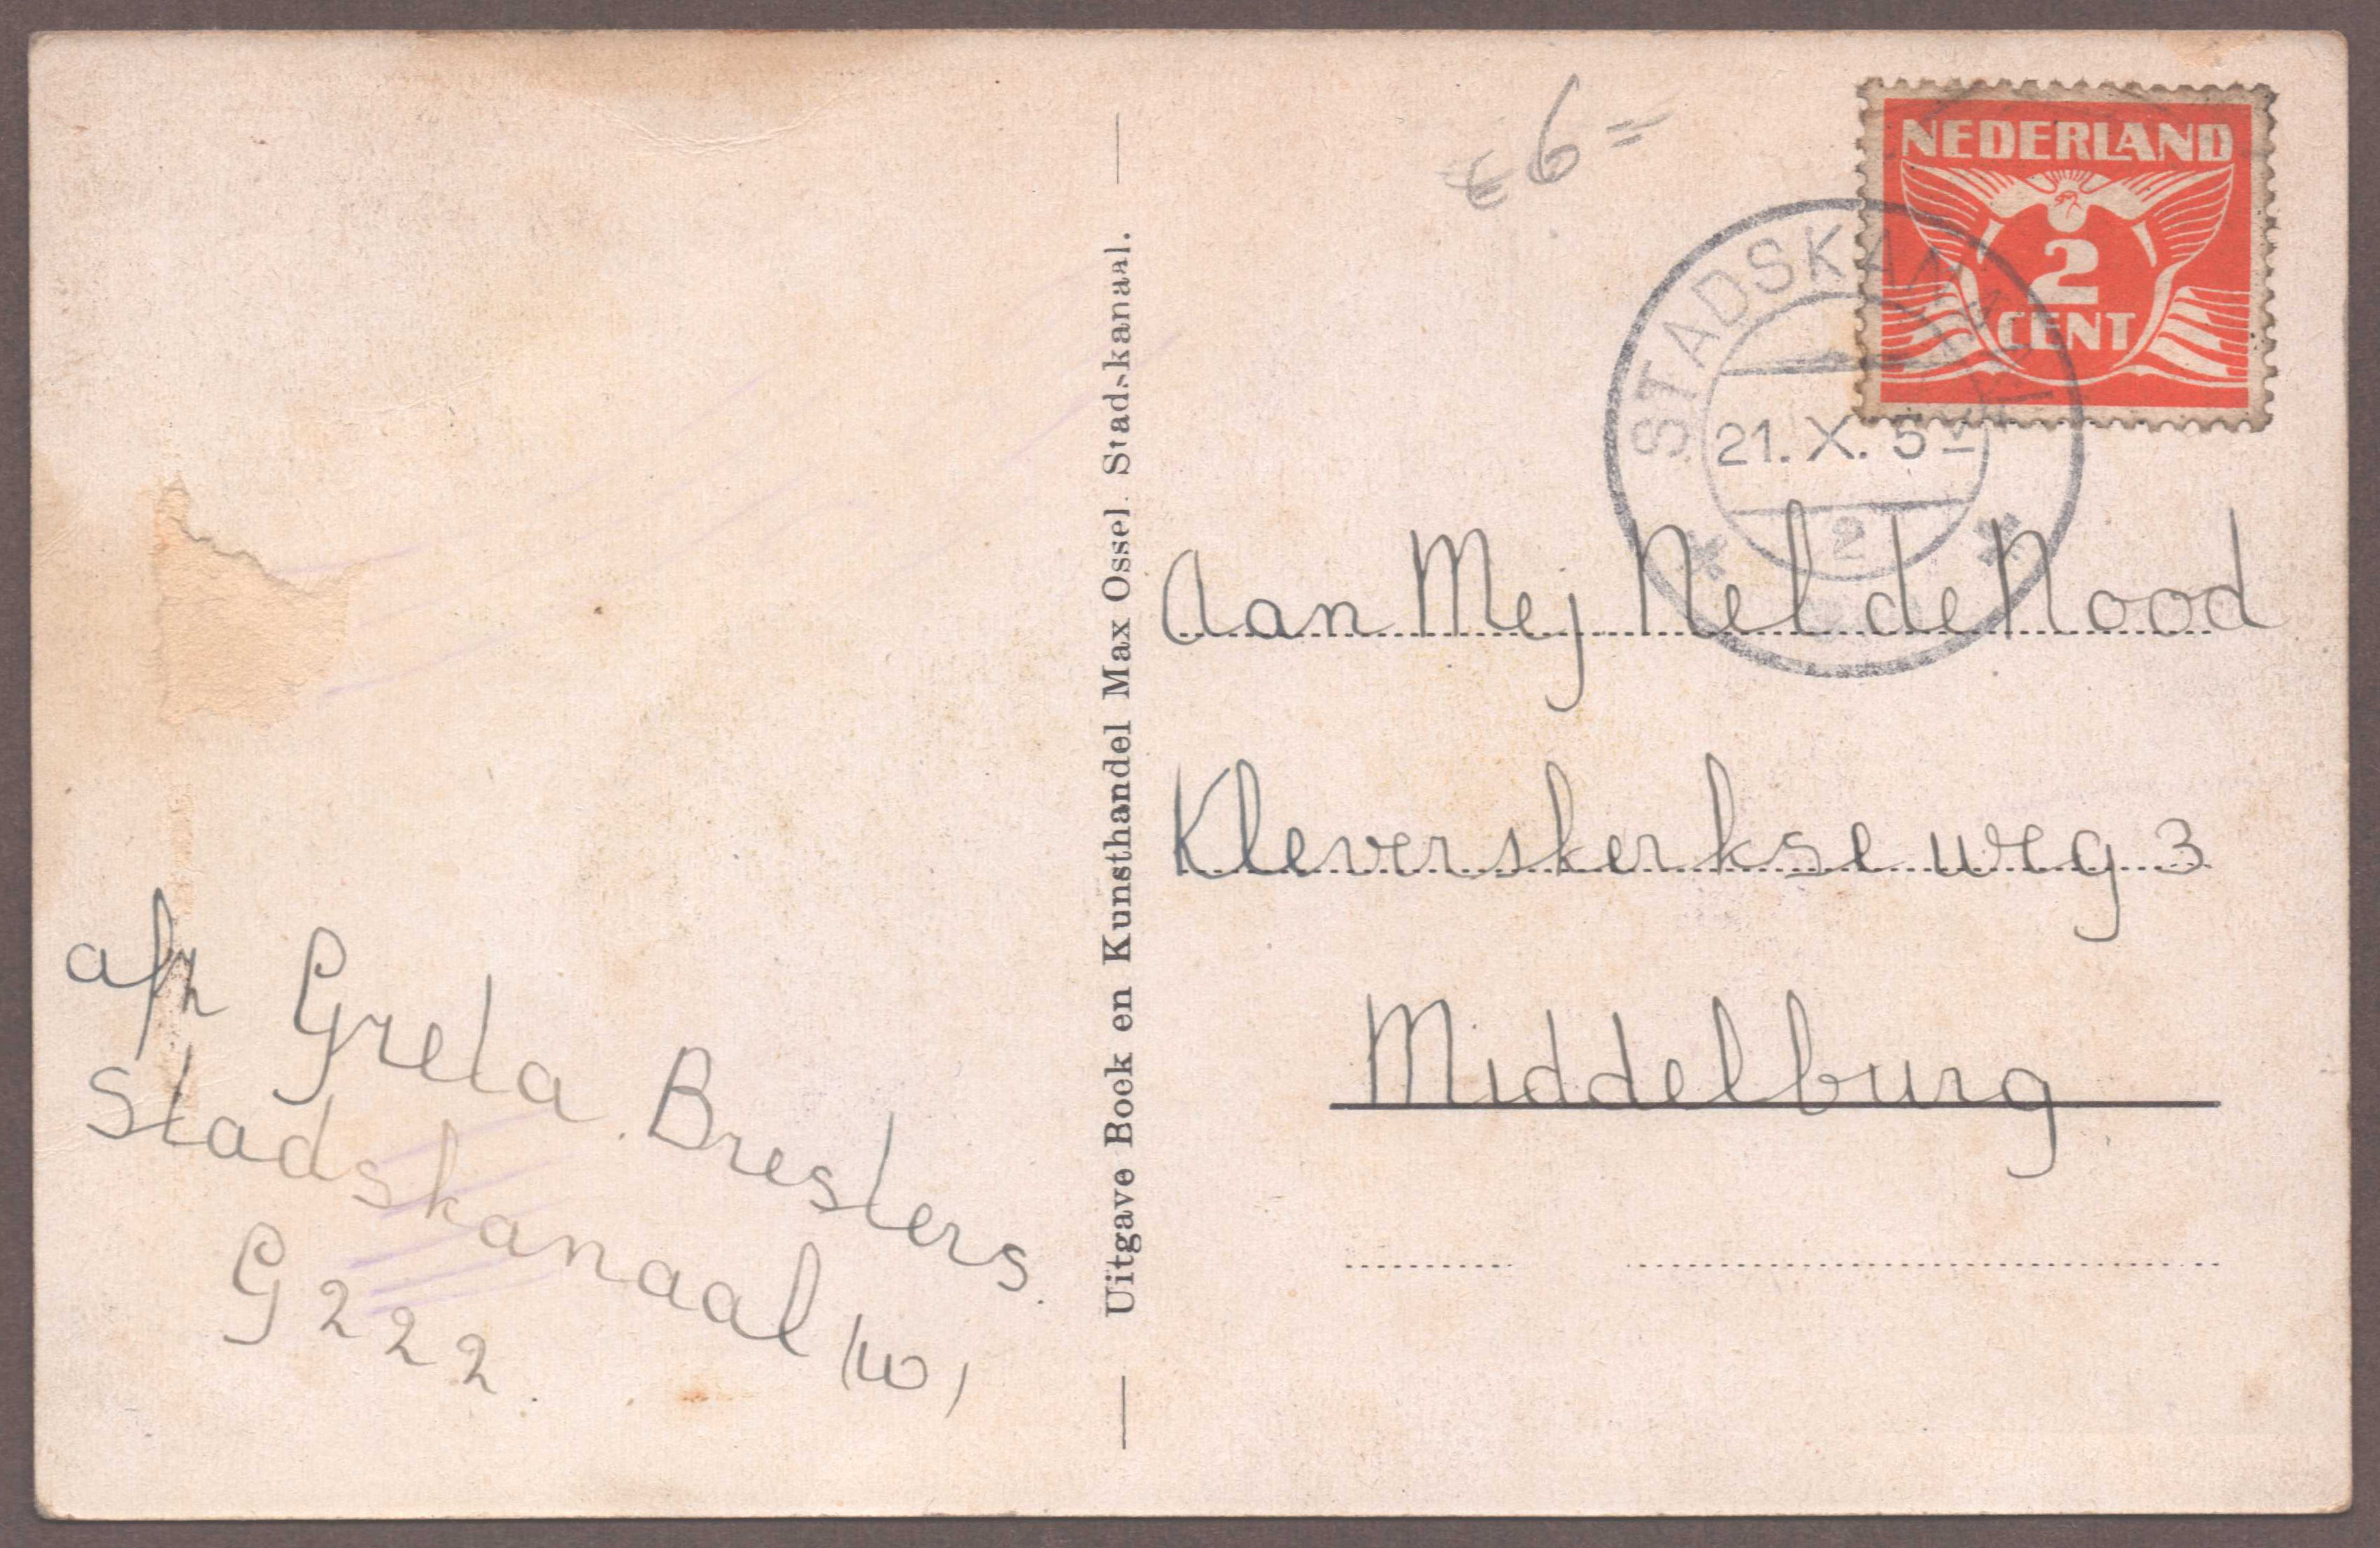 € 6 =
NEDERLAND
2
CENT
STADSKANAAL
21. X. 5 V
2
Uitgave Boek en Kunsthandel Max Ossel. Stadskanaal.
Aan Mej Nel de Nood
Kleverskerkse weg 3
Middelburg
afz Greta Breslers.
Stadskanaal (w)
G 222.